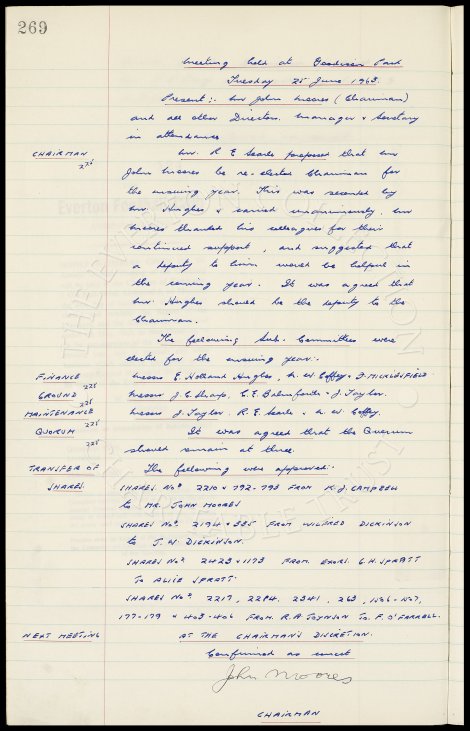 269
Meeting held at Goodison Park
Tuesday 25 June 1963.
Present:- Mr John Moores (Chairman)
and all other Directors. Manager & Secretary
in attendance
CHAIRMAN
Mr. R E Searle proposed that Mr
John Moores be re-elected Chairman for
the ensuing year. This was seconded by
Mr. Hughes & carried unanimously. Mr
Moores thanked his colleagues for their
continued support, and suggested that
a deputy to him would be helpful in
the coming year. It was agreed that
Mr. Hughes should be the deputy to the
Chairman.
The following Sub. Committees were
elected for the ensuing year.
FINANCE
Messrs E. Holland Hughes, N. W Coffey & D. MICKLESFIELD
GROUND
Messrs J. C. Sharp, C. E. Balmforth & J. Taylor.
MAINTENANCE
Messrs J. Taylor. R. E. Searle & N. W. Coffey.
QUORUM
It was agreed that the Quorum
should remain at three.
TRANSFER OF
SHARES
The following were approved.
SHARES Nos. 2210 & 792-793 FROM R. J. CAMPBELL
to MR. JOHN MOORES
SHARES Nos. 2194 & 385 FROM WILFRED DICKINSON
to J. W DICKINSON.
SHARES Nos 2423 & 1173 FROM EXORS. G. H. SPRATT
TO ALICE SPRATT.
SHARES Nos. 2217, 2284, 2341, 263, 1506-1507,
177-179 & 403-406 FROM. R. A JOYNSON TO. F. O'FARRELL.
NEXT MEETING
AT THE CHAIRMAN'S DISCRETION.
Confirmed as correct
John Moores
CHAIRMAN